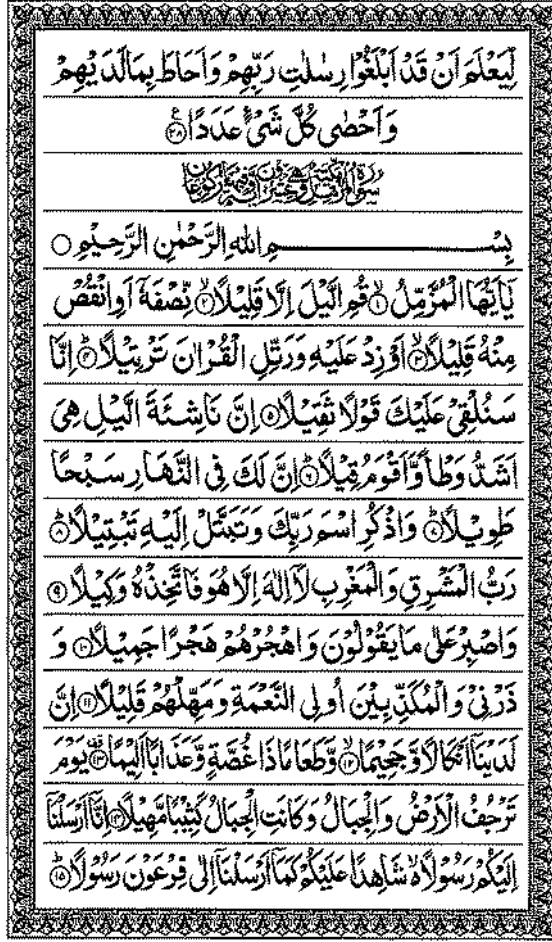 لِّيَعْلَمَ اَنْ قَدْ اَبْلَغُوْا رِسٰلٰتِ رَبِّهِمْ وَاَحَاطَ بِمَا لَدَيْهِمْ
وَاَحْصٰى كُلَّ شَىْءٍ عَدَدًا ﴿۲۸﴾
بِسْمِ اللهِ الرَّحْمٰنِ الرَّحِيْمِ
يٰۤاَيُّهَا الْمُزَّمِّلُ ﴿۱﴾ قُمِ الَّيْلَ اِلَّا قَلِيْلًا ﴿۲﴾ نِّصْفَهٗۤ اَوِ انْقُصْ
مِنْهُ قَلِيْلًا ﴿۳﴾ اَوْ زِدْ عَلَيْهِ وَرَتِّلِ الْقُرْاٰنَ تَرْتِيْلًا ﴿۴﴾ اِنَّا
سَنُلْقِىْ عَلَيْكَ قَوْلًا ثَقِيْلًا ﴿۵﴾ اِنَّ نَاشِئَةَ الَّيْلِ هِىَ
اَشَدُّ وَطْاً وَّاَقْوَمُ قِيْلًا ﴿۶﴾ اِنَّ لَكَ فِى النَّهَارِ سَبْحًا
طَوِيْلًا ﴿۷﴾ وَاذْكُرِ اسْمَ رَبِّكَ وَتَبَتَّلْ اِلَيْهِ تَبْتِيْلًا ﴿۸﴾
رَبُّ الْمَشْرِقِ وَالْمَغْرِبِ لَاۤ اِلٰهَ اِلَّا هُوَ فَاتَّخِذْهُ وَكِيْلًا ﴿۹﴾
وَاصْبِرْ عَلٰى مَا يَقُوْلُوْنَ وَاهْجُرْهُمْ هَجْرًا جَمِيْلًا ﴿۱۰﴾ وَ
ذَرْنِىْ وَالْمُكَذِّبِيْنَ اُولِى النَّعْمَةِ وَمَهِّلْهُمْ قَلِيْلًا ﴿۱۱﴾ اِنَّ
لَدَيْنَاۤ اَنْكَالًا وَّجَحِيْمًا ﴿۱۲﴾ وَّطَعَامًا ذَا غُصَّةٍ وَّعَذَابًا اَلِيْمًا ﴿۱۳﴾ يَوْمَ
تَرْجُفُ الْاَرْضُ وَالْجِبَالُ وَكَانَتِ الْجِبَالُ كَثِيْبًا مَّهِيْلًا ﴿۱۴﴾ اِنَّاۤ اَرْسَلْنَاۤ
اِلَيْكُمْ رَسُوْلًا ۙ شَاهِدًا عَلَيْكُمْ كَمَاۤ اَرْسَلْنَاۤ اِلٰى فِرْعَوْنَ رَسُوْلًا ﴿۱۵﴾